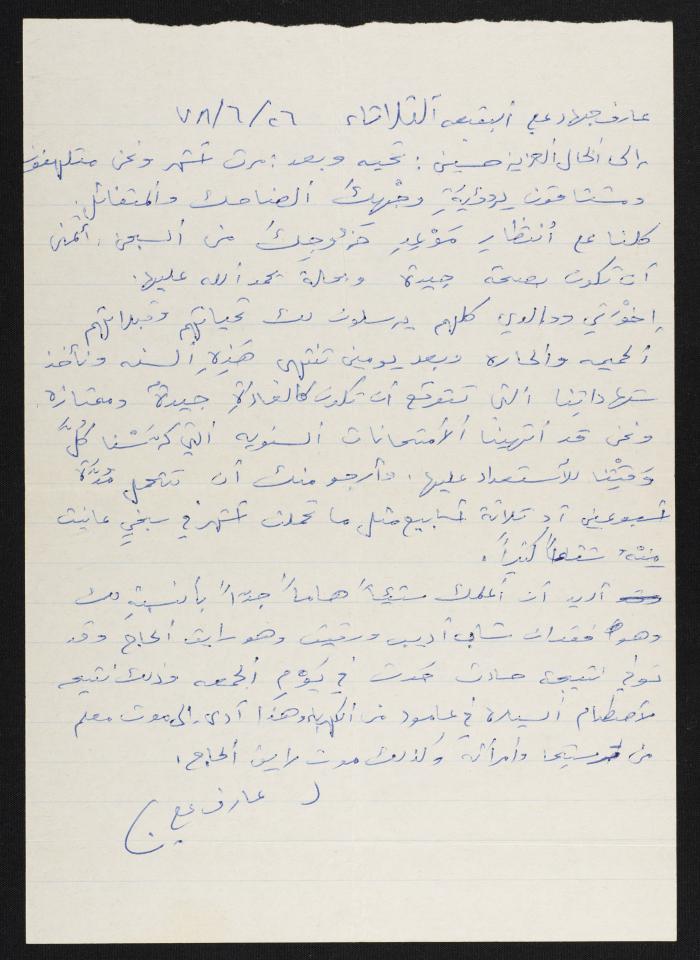 عارف جهاد علي البقيعه الثلاثاء ٧٨/٦/٢٦
إلى الخال العزيز حسين: تحيه وبعد: مرت أشهر ونحن متلهفون
ومشتاقون لرؤيةِ وجْهِكَ الضاحك والمتفائل.
كلنا على انتظارِ مَوْعِدِ خَروُجِكَ من السجن، أتمنى
أن تكون بصحة جيدة وبحالة نحمد الله عليها.
إخْوَتي ووالدي كلهم يرسلون لك تحياتهم وقبلاتهم
الحميمه والحاره وبعد يومين تنتهي هَذِهِ السنه ونأخذ
شهاداتِنا التي نتوقع أن تكون كالعادةِ جيدةً وممتازه
ونحن قد أنهينا الأمتحانات السنويه التي كرَّسْنا كُلَّ
وَقْتِنا للأستعداد عليها. وأرجو منك أن تتحمل مُدَّةَ
أسبوعين أو ثلاثة أسابيع مثل ما تحملت أشهر في سجنٍ عانيت
مِنْهُ كثيراً.
أريد أن أعلمك شيئاً هاماً جدّاً بالنسبةِ لك
وهو فقدان شاب أديب ورقيق وهو رايق الحاج وقد
توفي نتيجة حادث حَدث في يَوْمِ الجمعه وذلك نتيجه
لأصطدام السيارة في عامود من الكهرباء وهذا أدى إلى موت معلم
من ترشيحا وأمرأته وكذلك موت رايق الحاج.
عارف علي